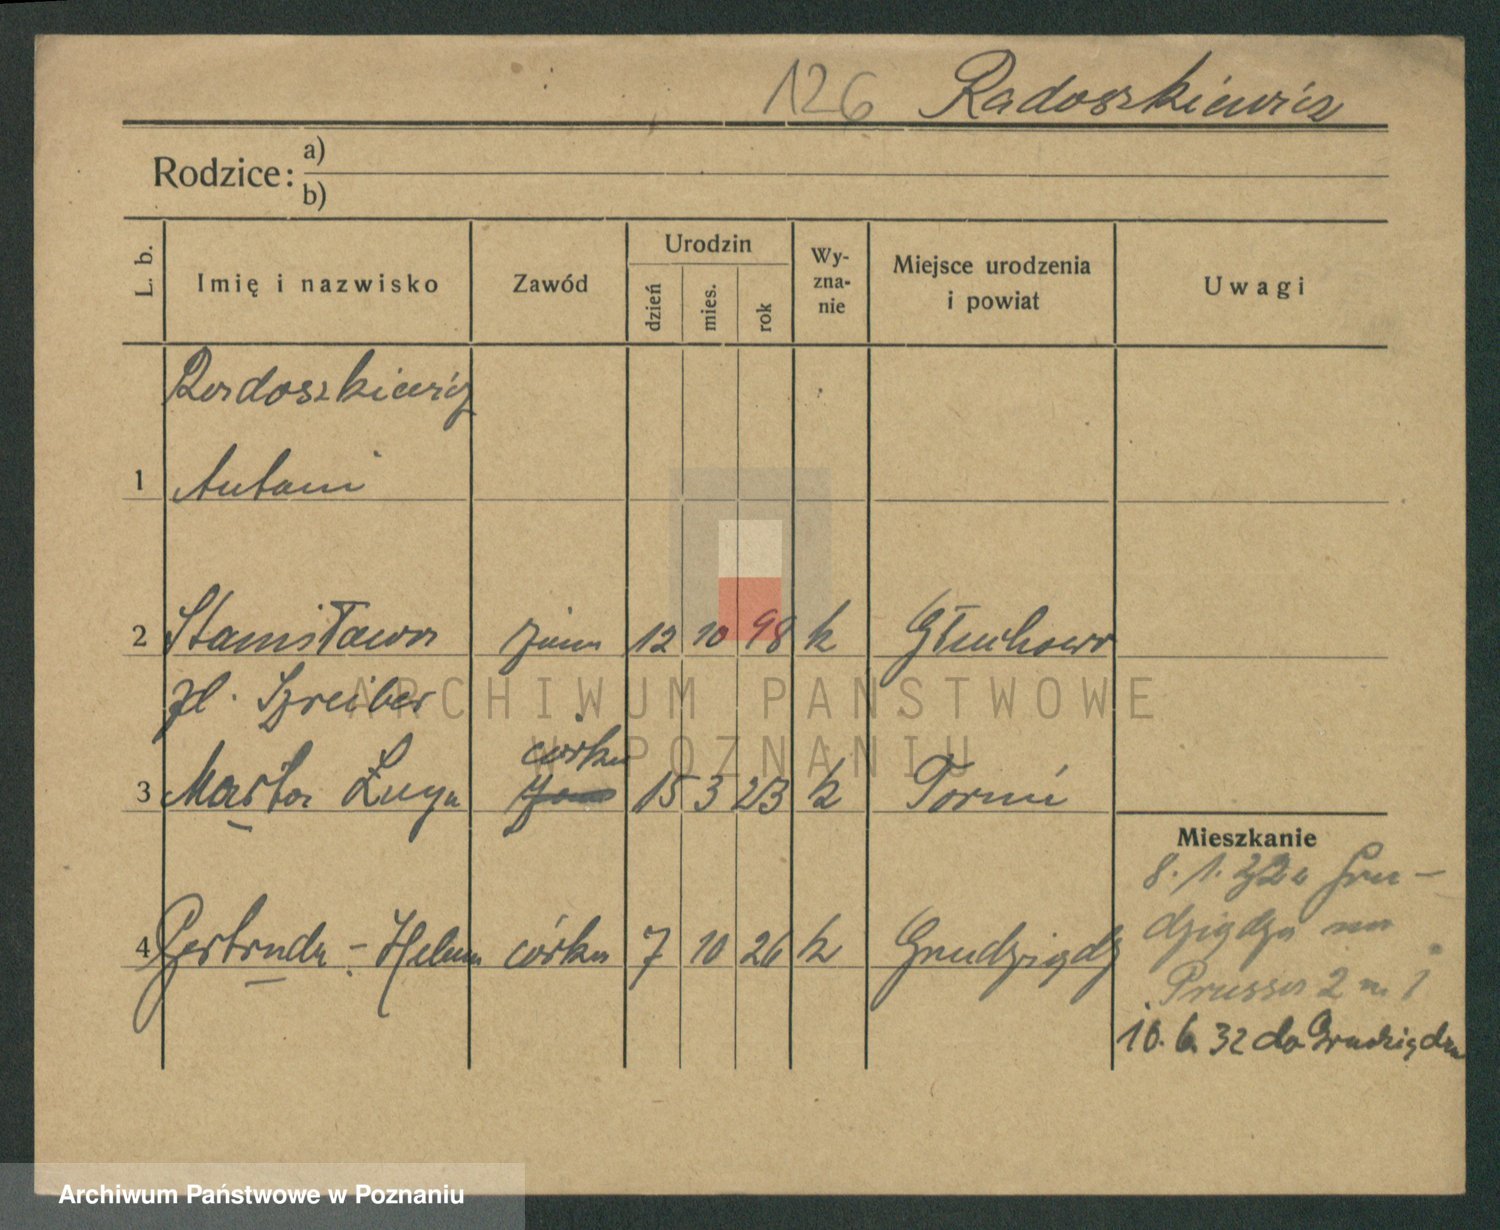 126 Radoszkiewicz
Rodzice:
a)
b)
L. b.
Imię i nazwisko
Zawód
Urodzin
dzień
mies.
rok
Wy-
zna-
nie
Miejsce urodzenia
i powiat
Uwagi
Radoszkiewicz
1 Antoni
2 Stanisława żona 12 10 98 k Głuchowo
zd. Szreiber
córka
3 Marta 15 3 23 k Toruń
4 Gertruda - Helena córka 7 10 26 k Grudziądz
Mieszkanie
8. 1. 32 z Gru-
dziądza na
Prussa 2 m. 1
10. 6. 32 do Grudziądza
ARCHIWUM PAŃSTWOWE
W POZNANIU
Archiwum Państwowe w Poznaniu